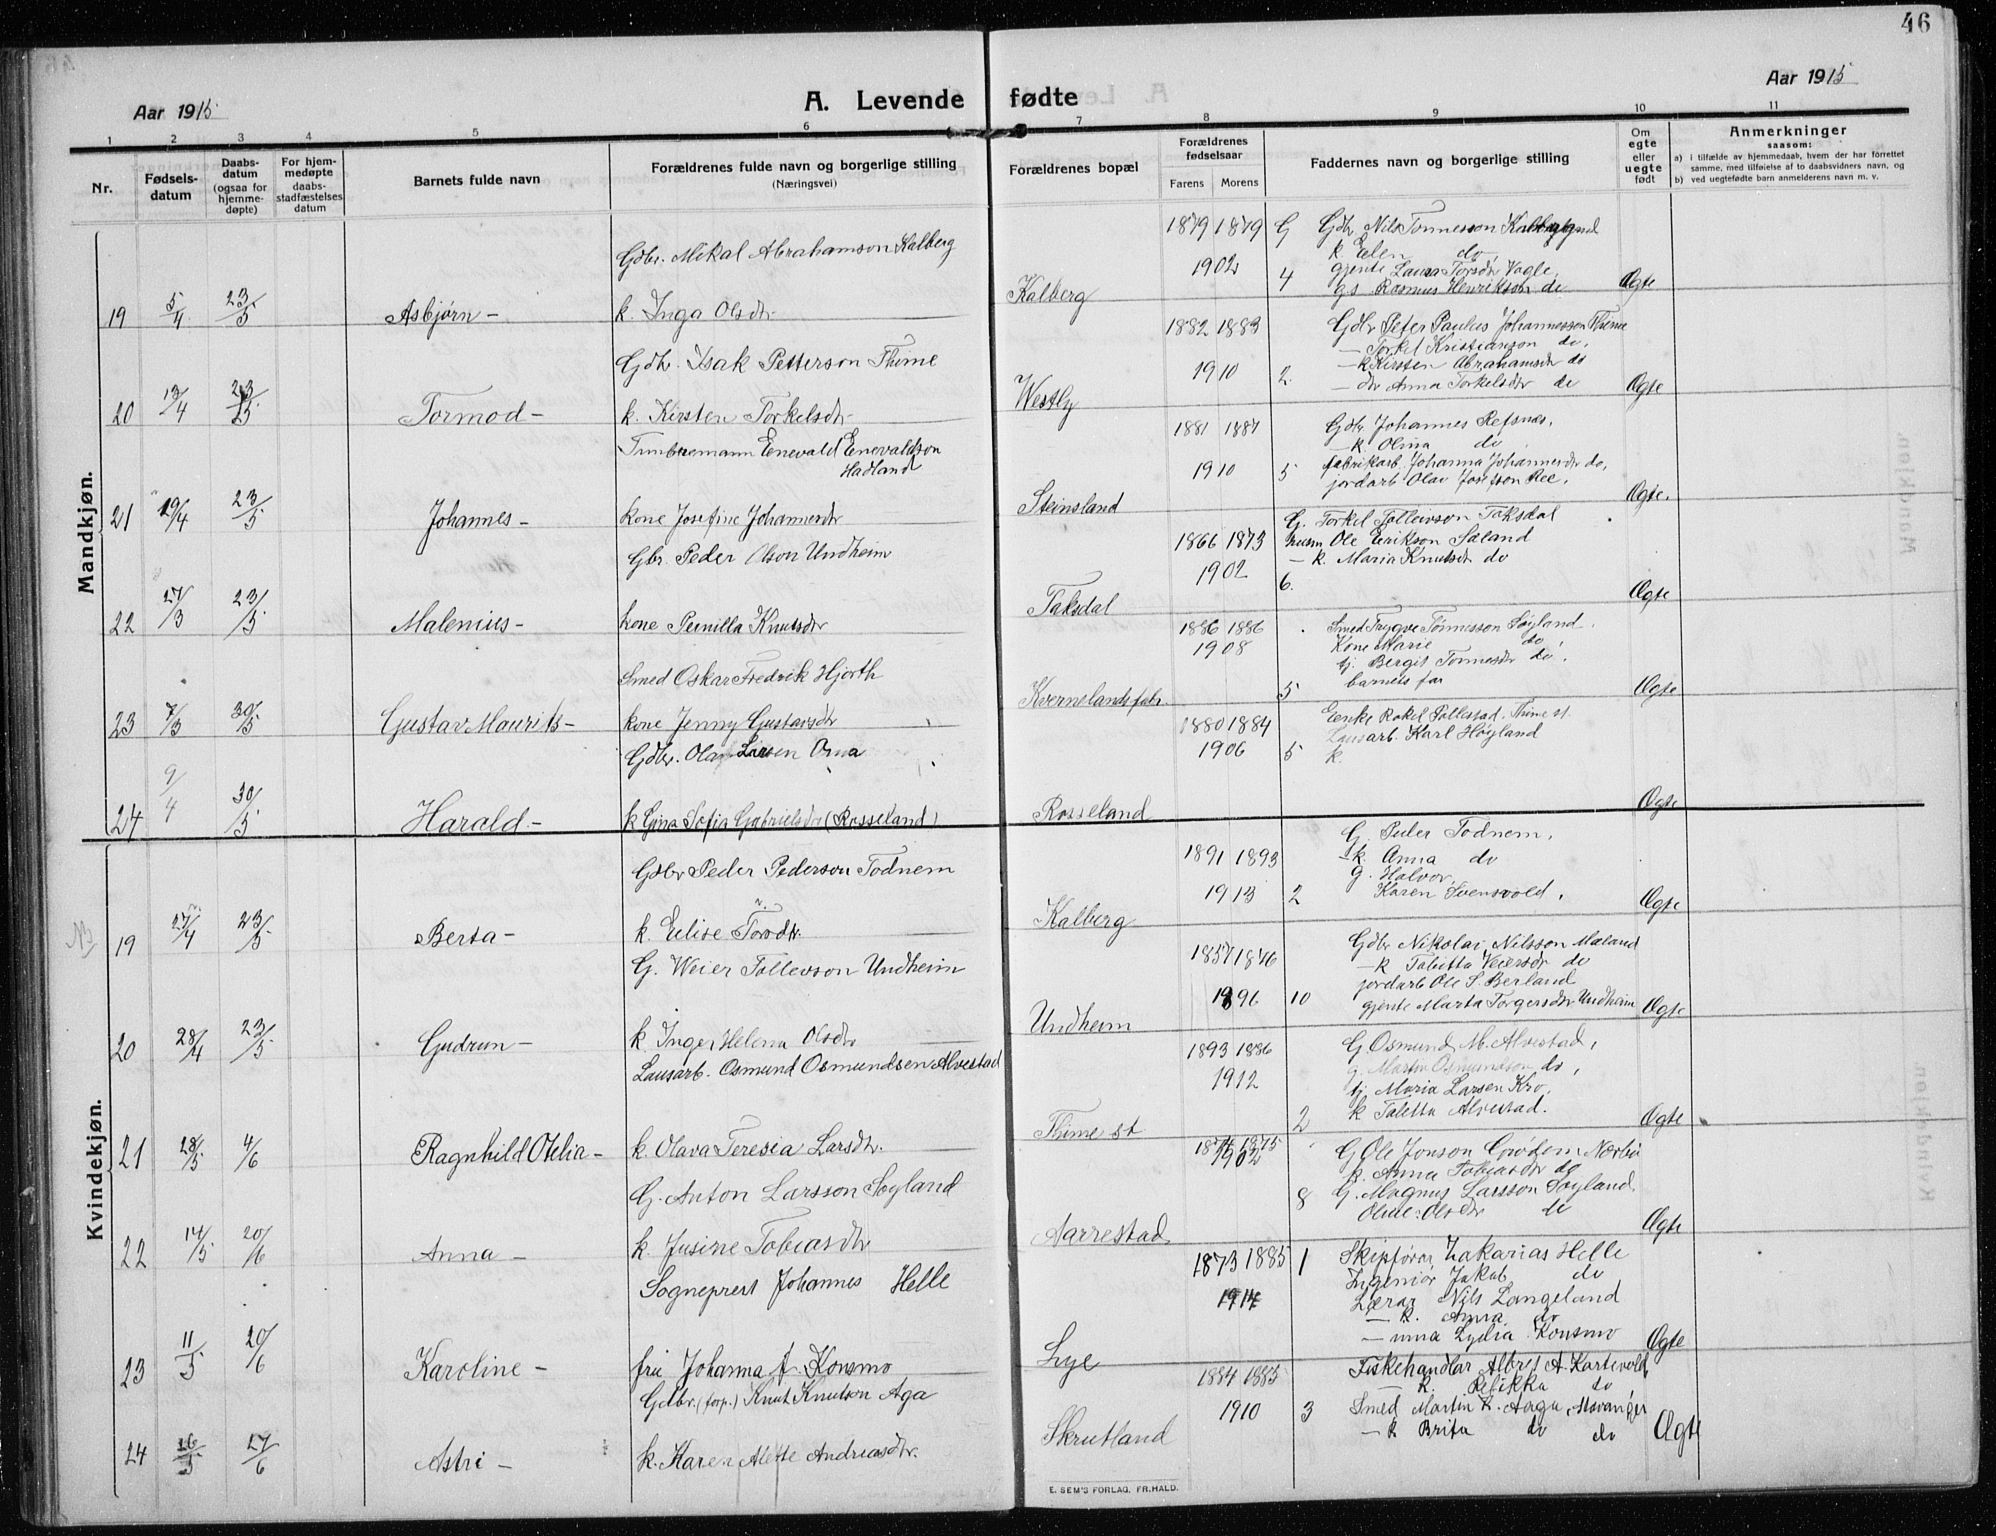 46
Aar 1915
A. Levende fødte
Aar 1915
1 2 3 4 5 6 7 8 9 10 11
Nr.
Fødsels-
datum
Daabs-
datum
(ogsaa for
hjemme-
døpte)
For hjem-
medøpte
daabs-
stadfæstelses
datum
Barnets fulde navn
Forældrenes fulde navn og borgerlige stilling
(Næringsvei)
Forældrenes bopæl
Forældrenes
fødselsaar
Farens Morens
Faddernes navn og borgerlige stilling
Om
egte
eller
uegte
født
Anmerkninger
saasom:
a) i tilfælde av hjemmedaab, hvem der har forrettet
samme, med tilføielse af to daabsvidners navn, og
b) ved uegtefødte barn anmelderens navn m. v.
Mandkjøn.
19 5/4 23/5 Asbjørn –
Gdbr. Mikal Abrahamson Kalberg
k. Inga Olsdtr.
Kalberg
1879 1879 G
1902 4
Gdbr Nils Tønnesson
k. Elen do,
gjente Laura Torsdtr Vagle,
gs Rasmus Henrikson do
Ægte
20 13/4 23/5 Tormod –
Gdbr. Isak Petterson Thime
k. Kirsten Torkelsdtr
Westly
1882 1883
1910 2.
Gdbr Peter Paulus Johannesson Thime
– Torkel Kristianson do,
– k Kirsten Abrahamsdtr do
– dtr Anna Torkelsdtr do
Ægte
21 19/4 23/5 Johannes –
Tømbermann Enevald Enevaldson
Hadland
kone Josefine Johannesdtr
Steinsland
1881 1887
1910 5
Gdbr Johannes Refsnæs,
– k. Olina do
fabrikarb. Johanna Johannesdtr do,
jordarb Olav Josefson Ree,
Ægte.
22 27/3 23/5 Malenius –
Gbr. Peder Olson Undheim
kone Pernilla Knutsdtr
Taksdal
1866 1873
1902 6.
G. Torkel Tolleivson Taksdal
husm Ole Erikson Sæland
– k. Maria Knutsdtr do
Ægte
23 7/3 30/5 Gustav Maurits –
Smed Oskar Fredrik Hjorth
kone Jenny Gustavsdtr
Kvernelandsfabr.
1886 1886
1908 5
Smed Trygve Tønnesson Søyland.
Kone Marie do,
tj. Bergit Tønnesdtr do,
barnets far
Ægte
24 9/4 30/5 Harald –
Gdbr. Olaf Larsen Oma
k Gina Sofia Gabrielsdtr (Rosseland)
Rosseland
1880 1884
1906 5
Enke Rakel Tollestad. Thime st.
Lausarb. Karl Høyland
k.
Ægte
Kvindekjøn.
19 27/4 23/5 Berta –
Gdbr Peder Pederson Todnem
k. Elise Torsdtr.
Kalberg
1891 1893
1913 2
G. Peder Todnem,
– k. Anna do
g. Halvor,
Karen Svensvold,
Ægte
20 28/4 23/5 Gudrun –
G. Weier Tollevson Undheim
k. Inger Helena Olsdtr
Undheim
1857 1876
1896 10
Gdbr Nikolai Nilsson Mæland
– k Tabitta Veiersdtr do
jordarb Ole S. Berland
gjente Marta Torgersdtr Undheim
Ægte
21 28/5 4/6 Ragnhild Otelia –
Lausarb. Osmund Osmundsen Alvestad
k. Olava Teresia Larsdtr.
Thime st
1893 1886
1912 2
G. Osmund M. Alvestad,
g. Martin Osmundson do,
tj. Maria Larsen Kro,
k Taletta Alvestad.
Ægte
22 14/5 20/6 Anna –
G. Anton Larsson Søyland
k. Jusine Tobiasdtr
Aarrestad
1874 1875
1902 8
G Ole Jonson Grødem Nærbø
k. Anna Tobiasdtr do
G. Magnus Larsson Søyland.
Oline Olsdtr do
Ægte
23 11/5 20/6 Karoline –
Sogneprest Johannes Helle
frue Johanna f. Konsmo
Lye
1873 1885 1
1914
Skipsførar Zakarias Helle
Ingeniør Jakob do
Lærar Nils Langeland
– k. Anna do
– Lydia Konsmo
Ægte
24 26/5 27/6 Astri –
Gdbr. (forp.) Knut Knutson Aga
k. Karen Alette Andreasdtr.
Skrutland
1884 1883
1910 3
Fiskehandlar Albret A. Kartevold,
– k. Rebikka do,
Smed Martin K. Aaga, Stavanger
– k Brita do do
Ægte
E. SEM'S FORLAG, FR.HALD.